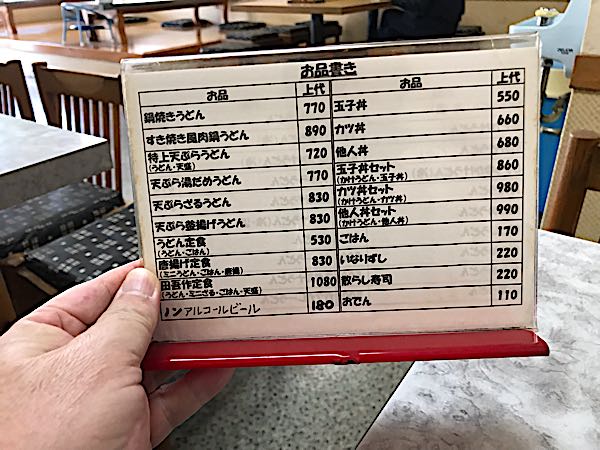 お品書き
お品 上代 お品 上代
鍋焼きうどん 770 玉子丼 550
すき焼き風肉鍋うどん 890 カツ丼 660
特上天ぷらうどん 720 他人丼 680
(うどん・天盛)
天ぷら湯だめうどん 770 玉子丼セット 860
(かけうどん・玉子丼)
天ぷらざるうどん 830 カツ丼セット 980
(かけうどん・カツ丼)
天ぷら釜揚げうどん 830 他人丼セット 990
(かけうどん・他人丼)
うどん定食 530 ごはん 170
(うどん・ごはん)
唐揚げ定食 830 いなりずし 220
(ミニうどん・ごはん・唐揚)
田吾作定食 1080 散らし寿司 220
(うどん・ミニざる・ごはん・天盛)
ノンアルコールビール 180 おでん 110